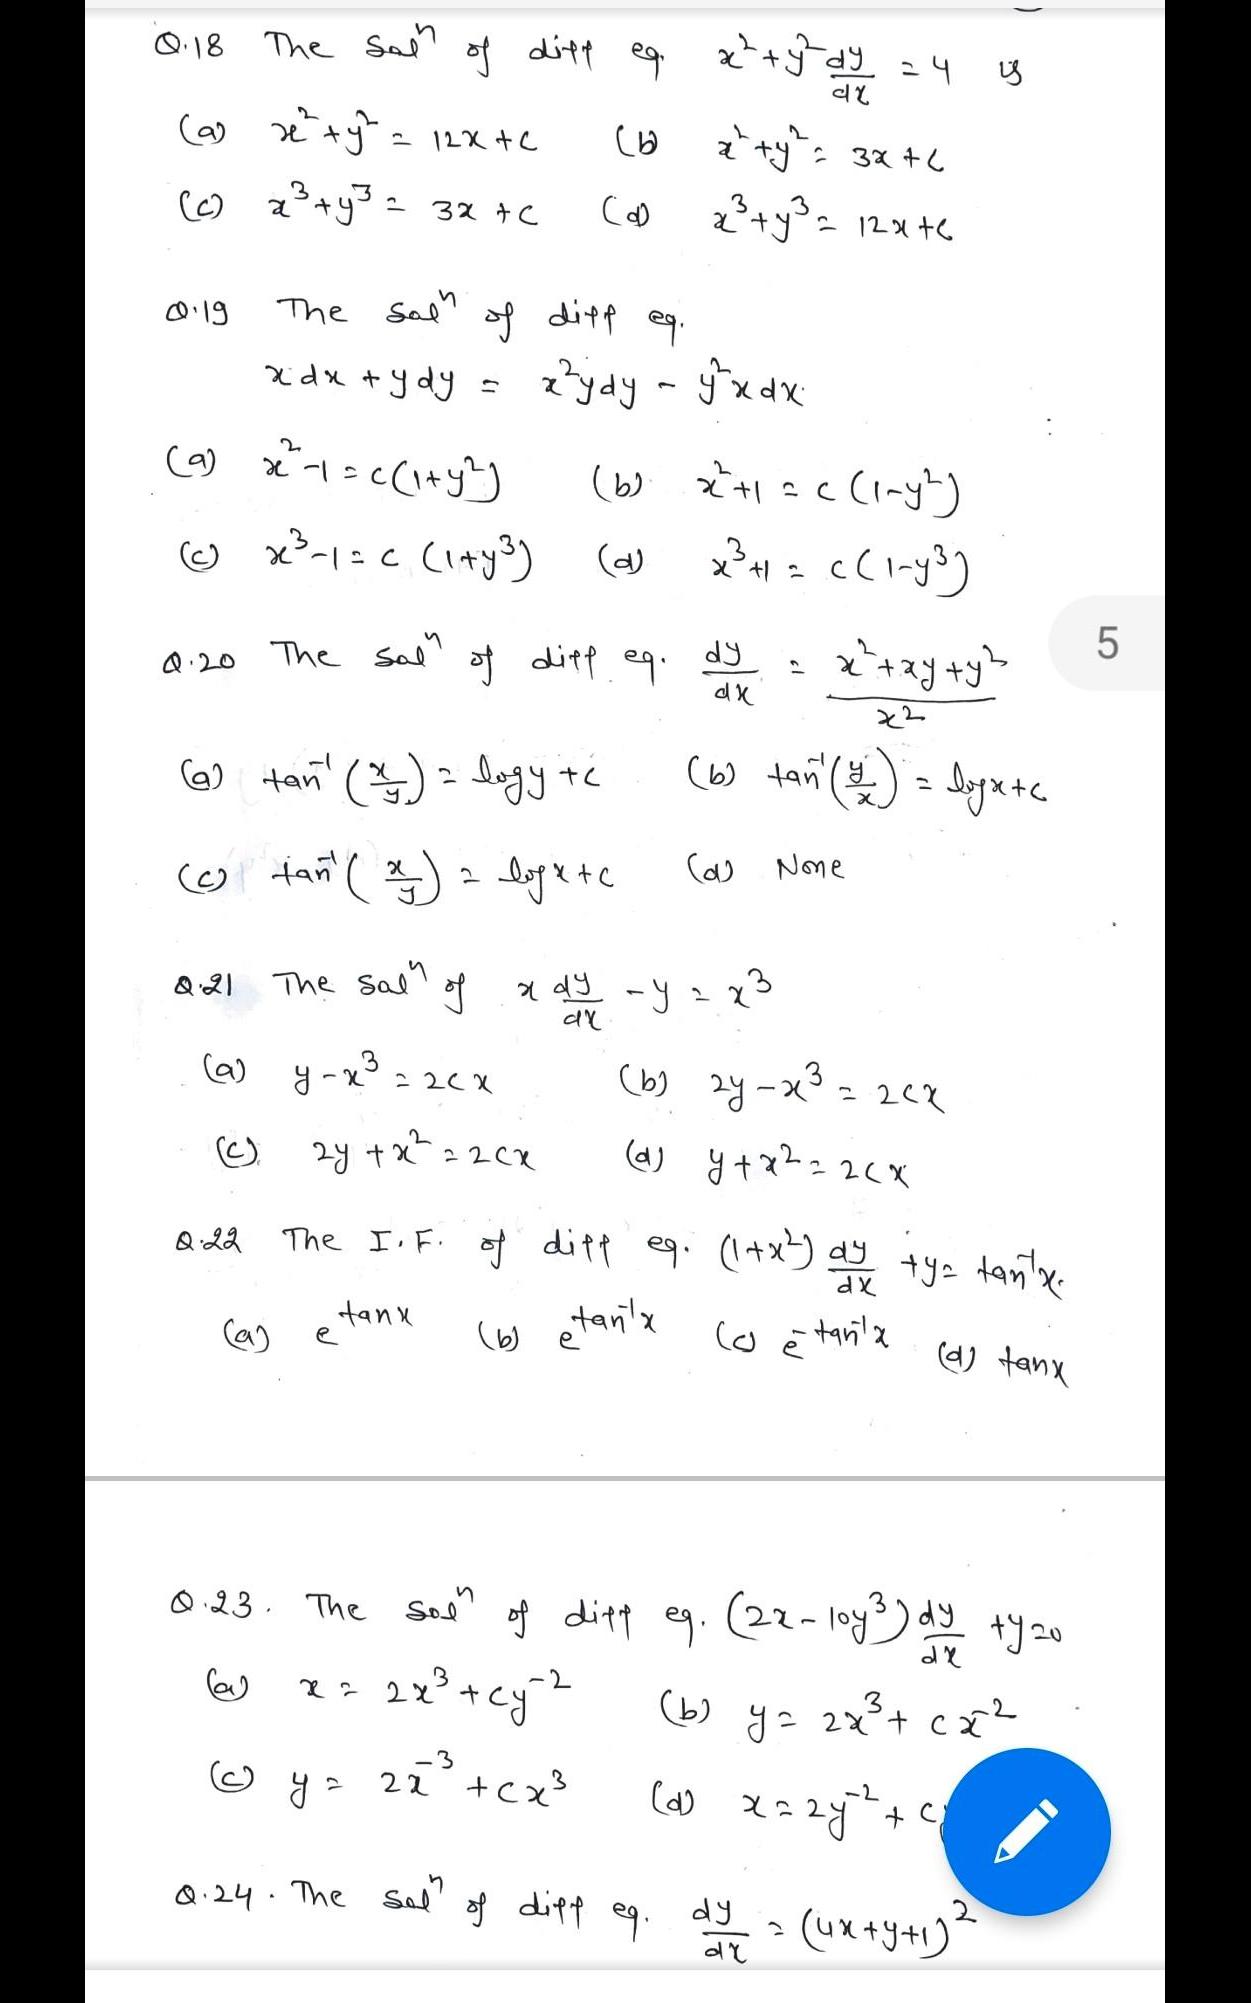 Q.18 The Solⁿ of diff eq. x²+y² dy/dx = 4 is
(a) x²+y² = 12x+c (b) x²+y² = 3x+c
(c) x³+y³ = 3x+c (d) x³+y³ = 12x+c
Q.19 The Solⁿ of diff eq.
xdx + ydy = x²ydy - y²xdx
(a) x²-1 = c(1+y²) (b) x²+1 = c(1-y²)
(c) x³-1 = c(1+y³) (d) x³+1 = c(1-y³)
5
Q.20 The Solⁿ of diff eq. dy/dx = (x²+xy+y²)/x²
(a) tan⁻¹(x/y) = logy+c (b) tan⁻¹(y/x) = logx+c
(c) tan⁻¹(x/y) = logx+c (d) None
Q.21 The Solⁿ of x dy/dx - y = x³
(a) y-x³ = 2cx (b) 2y-x³ = 2cx
(c) 2y+x² = 2cx (d) y+x² = 2cx
Q.22 The I.F. of diff eq. (1+x²) dy/dx + y = tan⁻¹x.
(a) e^tanx (b) e^tan⁻¹x (c) e^-tan⁻¹x (d) tanx
Q.23. The Solⁿ of diff eq. (2x-10y³) dy/dx + y=0
(a) x = 2x³+cy⁻² (b) y = 2x³+cx⁻²
(c) y = 2x⁻³+cx³ (d) x = 2y⁻²+c
Q.24. The Solⁿ of diff eq. dy/dx = (4x+y+1)²